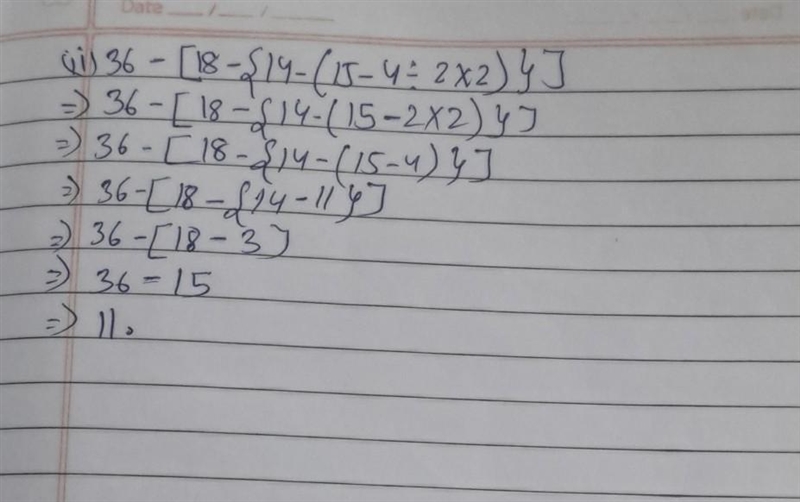 Date __/__/__
ii) 36 - [18 - {14 - (15 - 4 ÷ 2 × 2)}]
=) 36 - [18 - {14 - (15 - 2 × 2)}]
=) 36 - [18 - {14 - (15 - 4)}]
=) 36 - [18 - {14 - 11}]
=) 36 - [18 - 3]
=) 36 = 15
=) 11.